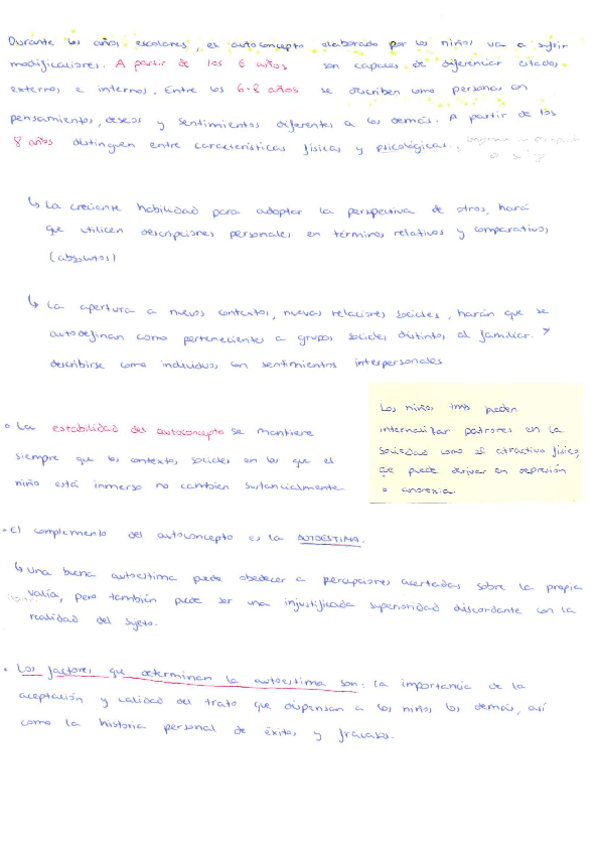 Durante los años escolares, el autoconcepto elaborado por los niños va a sufrir
modificaciones. A partir de los 6 años son capaces de diferenciar estados
externos e internos. Entre los 6-8 años se describen como personas con
pensamientos, deseos y sentimientos diferentes a los demás. A partir de los
8 años distinguen entre características físicas y psicológicas.,
↳ La creciente habilidad para adoptar la perspectiva de otros, hará
que utilicen descripciones personales en términos relativos y comparativos,
(absolutos)
↳ La apertura a nuevos contextos, nuevas relaciones sociales, harán que se
autodefinan como pertenecientes a grupos sociales distintos al familiar. Y
describirse como individuos con sentimientos interpersonales
• La estabilidad del autoconcepto se mantiene
siempre que los contextos sociales en los que el
niño está inmerso no cambien sustancialmente.
Los niños tmb pueden
internalizar patrones en la
sociedad como el atractivo físico,
que puede derivar en depresión
o anorexia.
• El complemento del autoconcepto es la AUTOESTIMA.
↳ Una buena autoestima puede obedecer a percepciones acertadas sobre la propia
valía, pero también puede ser una injustificada superioridad discordante con la
realidad del sujeto.
• Los factores que determinan la autoestima son: la importancia de la
aceptación y calidad del trato que dispensan a los niños los demás, así
como la historia personal de éxitos y fracasos.